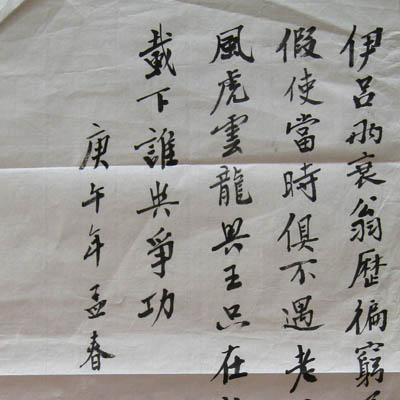 伊呂兩衰翁歷徧窮
假使當時俱不遇老
風虎雲龍興王只在
載下誰與爭功
庚午年孟春